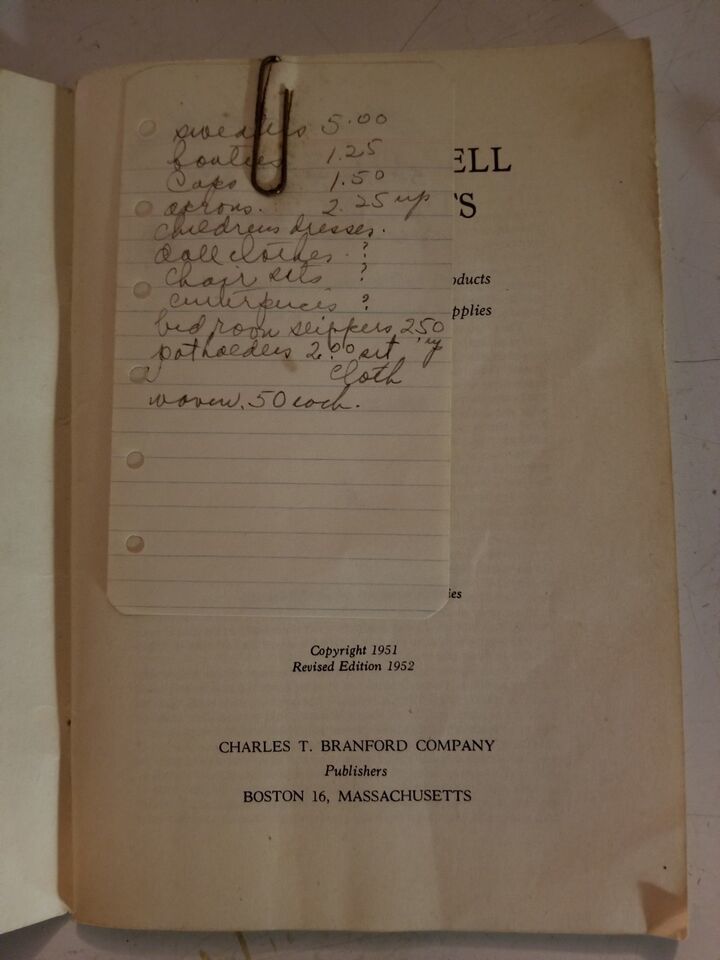 sweaters 5.00
booties 1.25
Caps 1.50
aprons. 2.25 up
childrens dresses.
doll clothes. ?
chair sets ?
centerpieces ?
bed room slippers 2.50
potholders 2.00 set up
cloth
woven .50 each.
ELL
'S
oducts
pplies
ies
Copyright 1951
Revised Edition 1952
CHARLES T. BRANFORD COMPANY
Publishers
BOSTON 16, MASSACHUSETTS